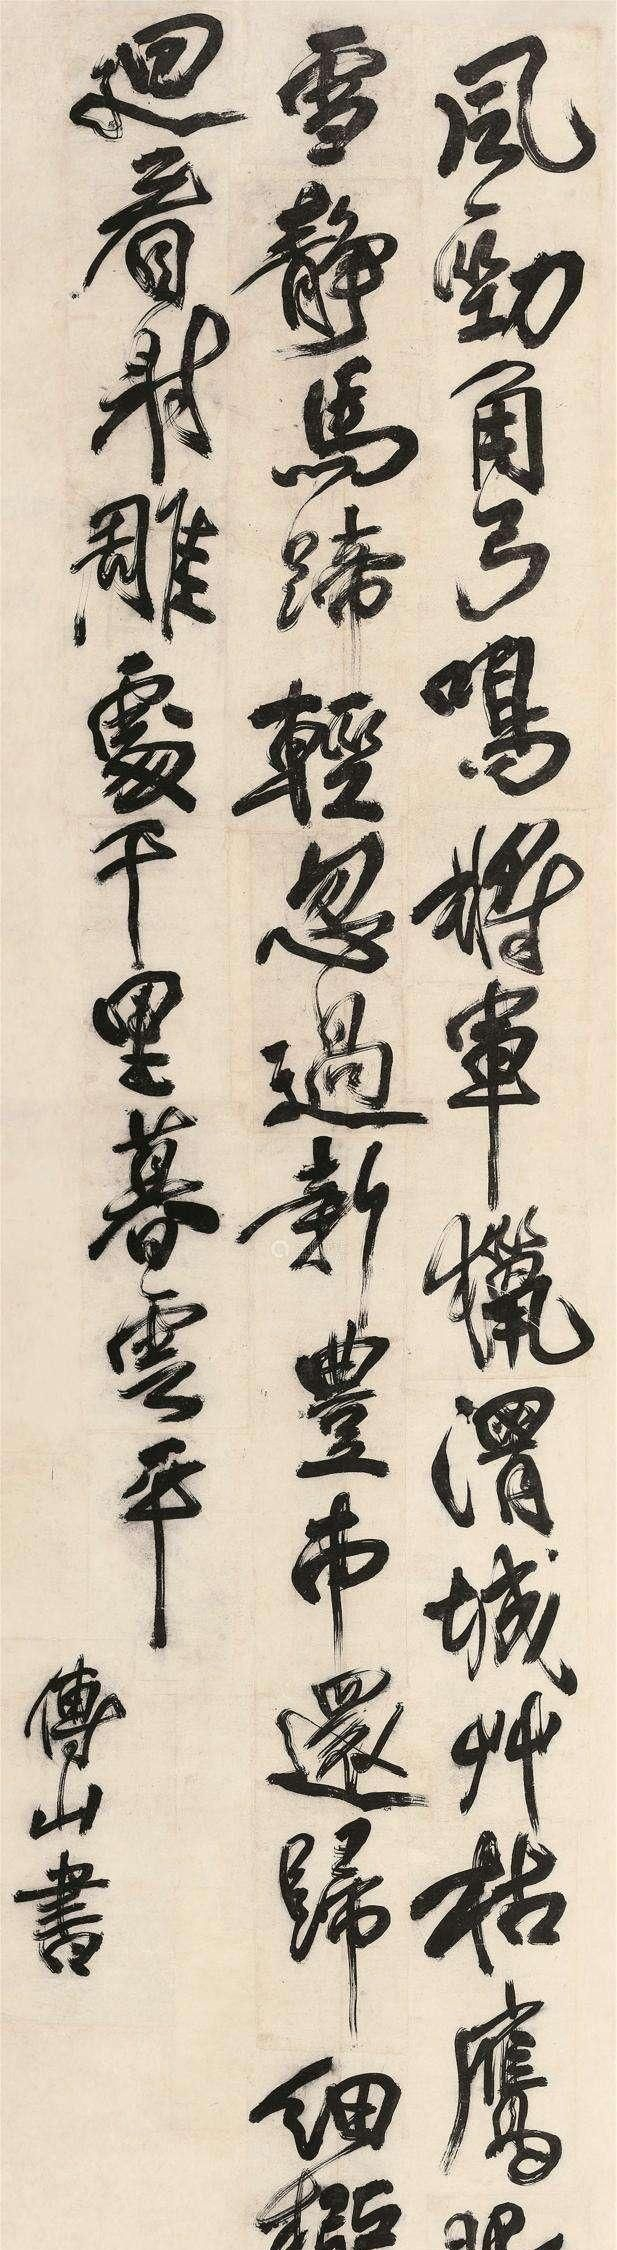 風勁角弓鳴將軍獵渭城艸枯鷹
雪静馬蹄輕忽過新豊市還歸細
廻看射雕處千里暮雲平
傅山書